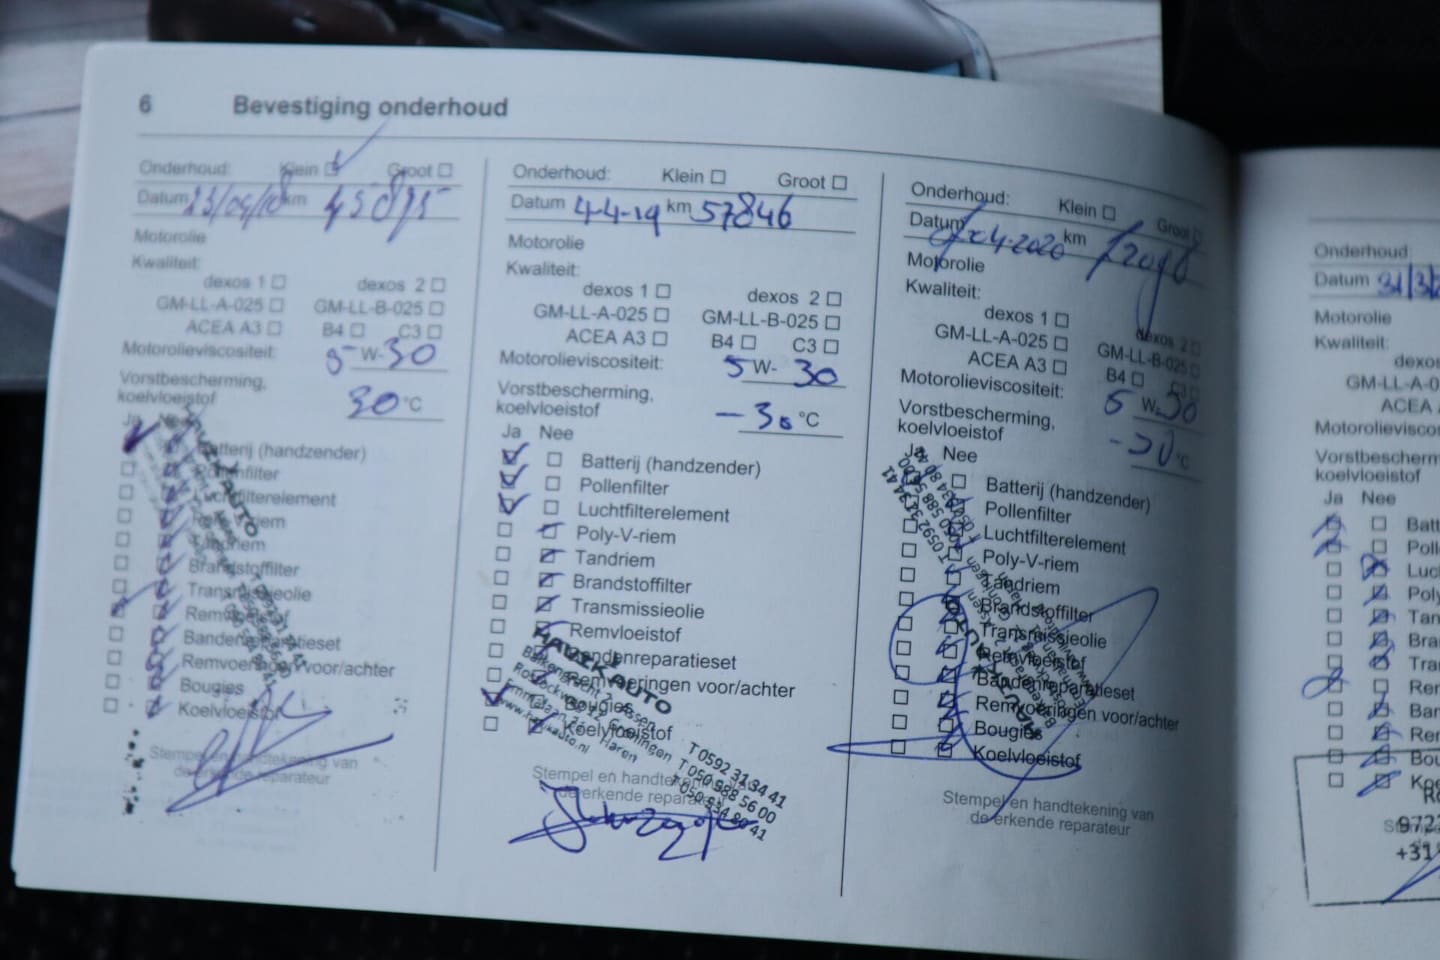 6 Bevestiging onderhoud
Onderhoud: Klein Groot
Datum 23/04/18 km 45895
Motorolie
Kwaliteit:
dexos 1 dexos 2
GM-LL-A-025 GM-LL-B-025
ACEA A3 B4 C3
Motorolieviscositeit: 5 W-30
Vorstbescherming,
koelvloeistof 30 °C
Ja Nee
Batterij (handzender)
Pollenfilter
Luchtfilterelement
Poly-V-riem
Tandriem
Brandstoffilter
Transmissieolie
Remvloeistof
Bandenreparatieset
Remvoeringen voor/achter
Bougies
Koelvloeistof
Stempel en handtekening van
de erkende reparateur
Onderhoud: Klein Groot
Datum 4-4-19 km 57846
Motorolie
Kwaliteit:
dexos 1 dexos 2
GM-LL-A-025 GM-LL-B-025
ACEA A3 B4 C3
Motorolieviscositeit: 5 W- 30
Vorstbescherming,
koelvloeistof -30 °C
Ja Nee
Batterij (handzender)
Pollenfilter
Luchtfilterelement
Poly-V-riem
Tandriem
Brandstoffilter
Transmissieolie
Remvloeistof
Bandenreparatieset
Remvoeringen voor/achter
Bougies
Koelvloeistof
HAVIK AUTO
Balkengracht 2 Assen T 0592 31 34 41
Rostockweg 12, Groningen T 050 588 56 00
Emmalaan 25 Haren T 050 534 80 41
www.havikauto.nl
Stempel en handtekening van
de erkende reparateur
Onderhoud: Klein Groot
Datum 04-2020 km
Motorolie
Kwaliteit:
dexos 1 dexos 2
GM-LL-A-025 GM-LL-B-025
ACEA A3 B4 C3
Motorolieviscositeit: 5 W-30
Vorstbescherming,
koelvloeistof -30 °C
Ja Nee
Batterij (handzender)
Pollenfilter
Luchtfilterelement
Poly-V-riem
Tandriem
Brandstoffilter
Transmissieolie
Remvloeistof
Bandenreparatieset
Remvoeringen voor/achter
Bougies
Koelvloeistof
T 0592 31 34 41
T 050 588 56 00
T 050 534 80 41
Stempel en handtekening van
de erkende reparateur
Onderhoud:
Datum 31/3/2
Motorolie
Kwaliteit:
dexos
GM-LL-A-0
ACEA A
Motorolieviscos
Vorstbescherm
koelvloeistof
Ja Nee
Batt
Polle
Luc
Poly
Tan
Bra
Tra
Ren
Ban
Ren
Bou
Koe
972
+31